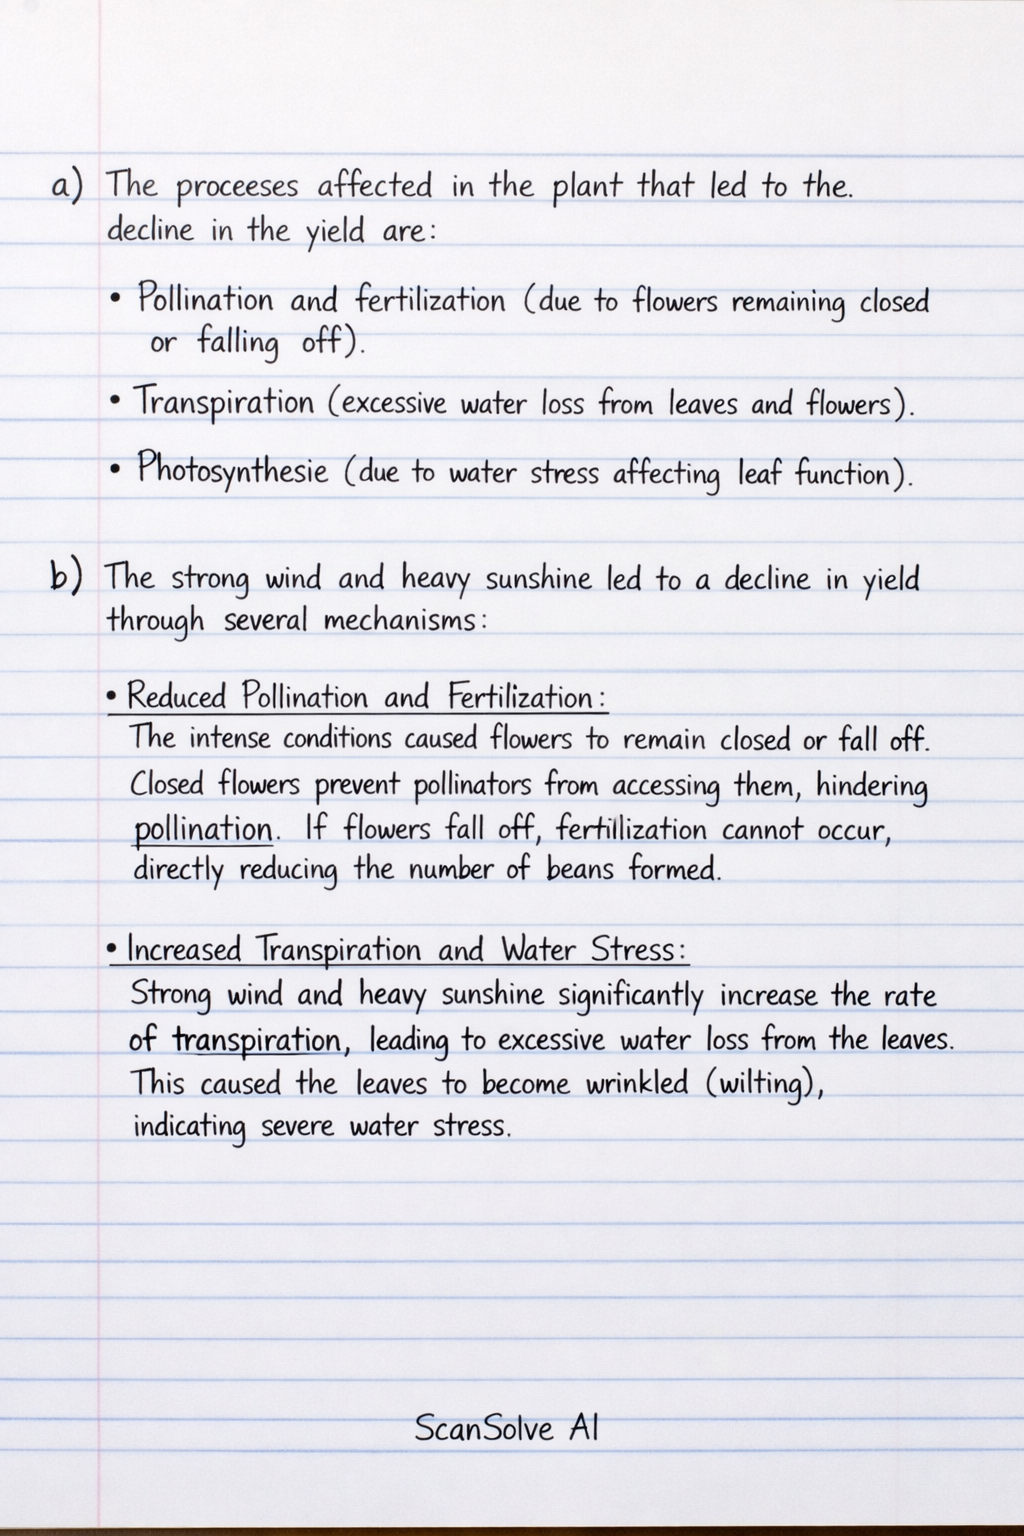 a) The proceeses affected in the plant that led to the.
decline in the yield are:
• Pollination and fertilization (due to flowers remaining closed
or falling off).
• Transpiration (excessive water loss from leaves and flowers).
• Photosynthesie (due to water stress affecting leaf function).
b) The strong wind and heavy sunshine led to a decline in yield
through several mechanisms:
• Reduced Pollination and Fertilization:
The intense conditions caused flowers to remain closed or fall off.
Closed flowers prevent pollinators from accessing them, hindering
pollination. If flowers fall off, fertillization cannot occur,
directly reducing the number of beans formed.
• Increased Transpiration and Water Stress:
Strong wind and heavy sunshine significantly increase the rate
of transpiration, leading to excessive water loss from the leaves.
This caused the leaves to become wrinkled (wilting),
indicating severe water stress.
ScanSolve AI